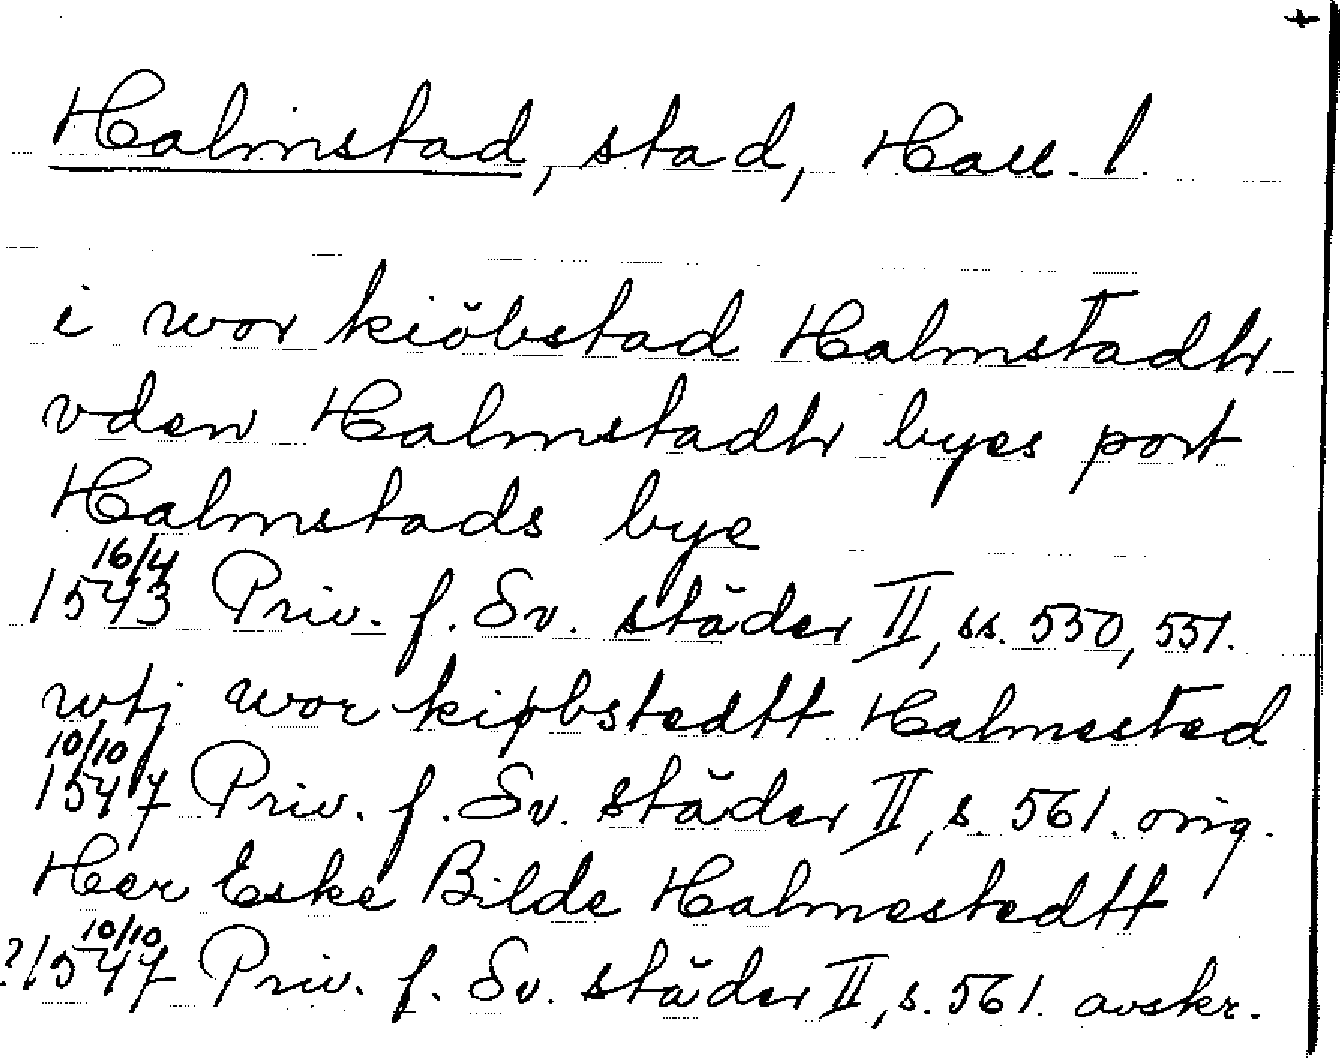 +
Halmstad, stad, Hall. l.
i wor kiöbstad Halmstadh
vden Halmstadh byes port
Halmstads bye
16/4
1543 Priv. f. Sv. städer II, ss. 550, 551.
wtj wor kiøbstedtt Halmsted
10/10
1547 Priv. f. Sv. städer II, s. 561. orig.
Her Eske Bilde Halmestedtt
10/10
?1547 Priv. f. Sv. städer II, s. 561. avskr.